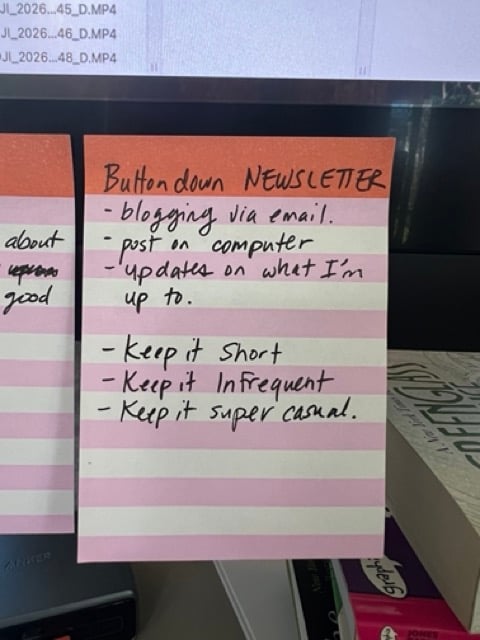 JI_2026...45_D.MP4
JI_2026...46_D.MP4
JI_2026...48_D.MP4
Buttondown NEWSLETTER
- blogging via email.
- post on computer
- updates on what I'm
up to.
- Keep it Short
- Keep it Infrequent
- Keep it super casual.
about
good
ANKER
JONES